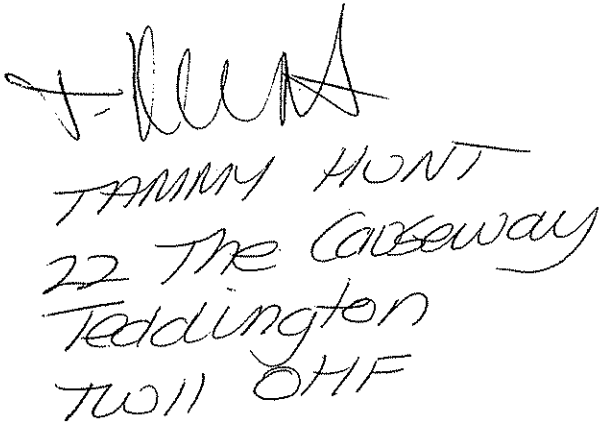 T. Hunt
TAMMY HUNT
22 The Causeway
Teddington
TW11 0HF